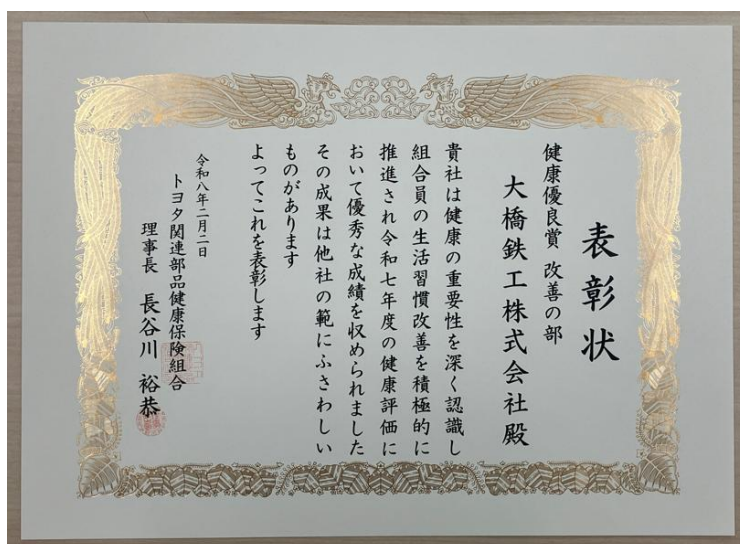 表彰状
健康優良賞 改善の部
大橋鉄工株式会社殿
貴社は健康の重要性を深く認識し
組合員の生活習慣改善を積極的に
推進され令和七年度の健康評価に
おいて優秀な成績を収められました
その成果は他社の範にふさわしい
ものがあります
よってこれを表彰します
令和八年二月二日
トヨタ関連部品健康保険組合
理事長 長谷川 裕恭